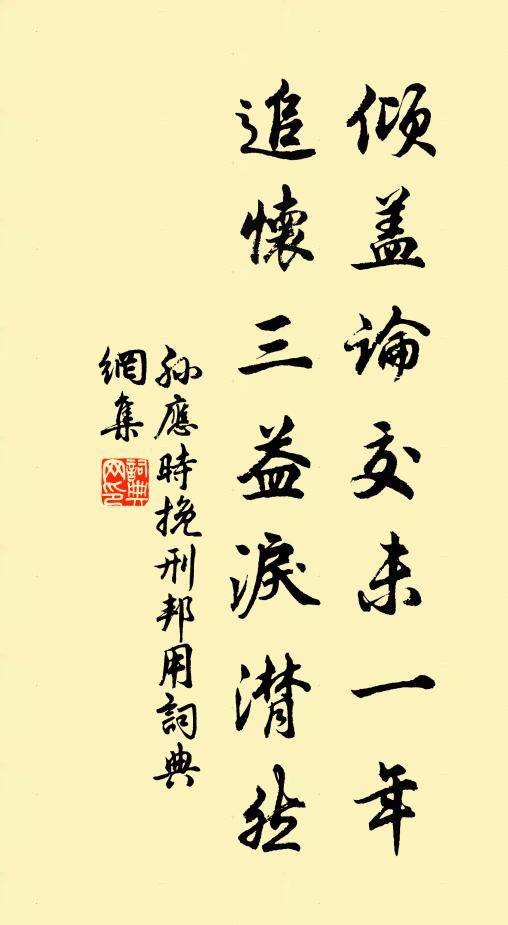 傾盖論交未一年
追懷三益淚潸然
孫應時挽刑邦用詞典
網集
詞典
网印